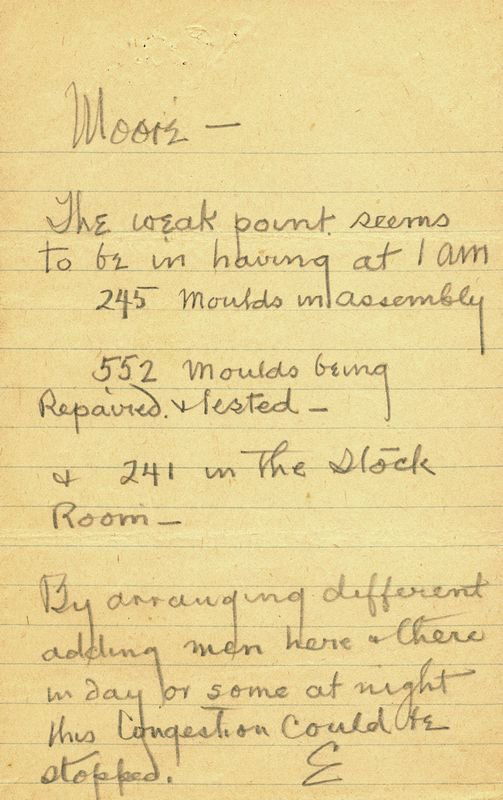 Moore —
The weak point seems
to be in having at 1 am
245 Moulds in assembly
552 Moulds being
Repaired. & Tested —
& 241 in The Stock
Room —
By arranging different
adding men here & there
in day or some at night
this Congestion Could be
stopped. E